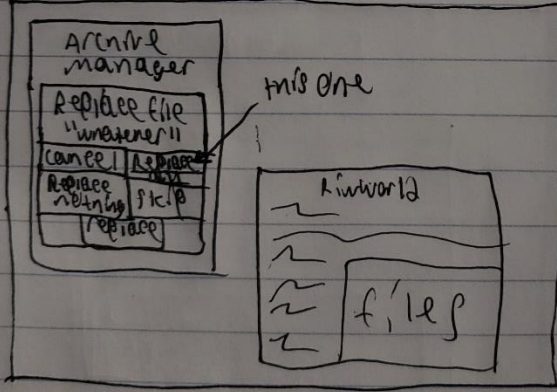 Archive
manager
this one
Replace file
"whatever"
cancel Replace
All
Replace
nothing skip
replace
Rimworld
files